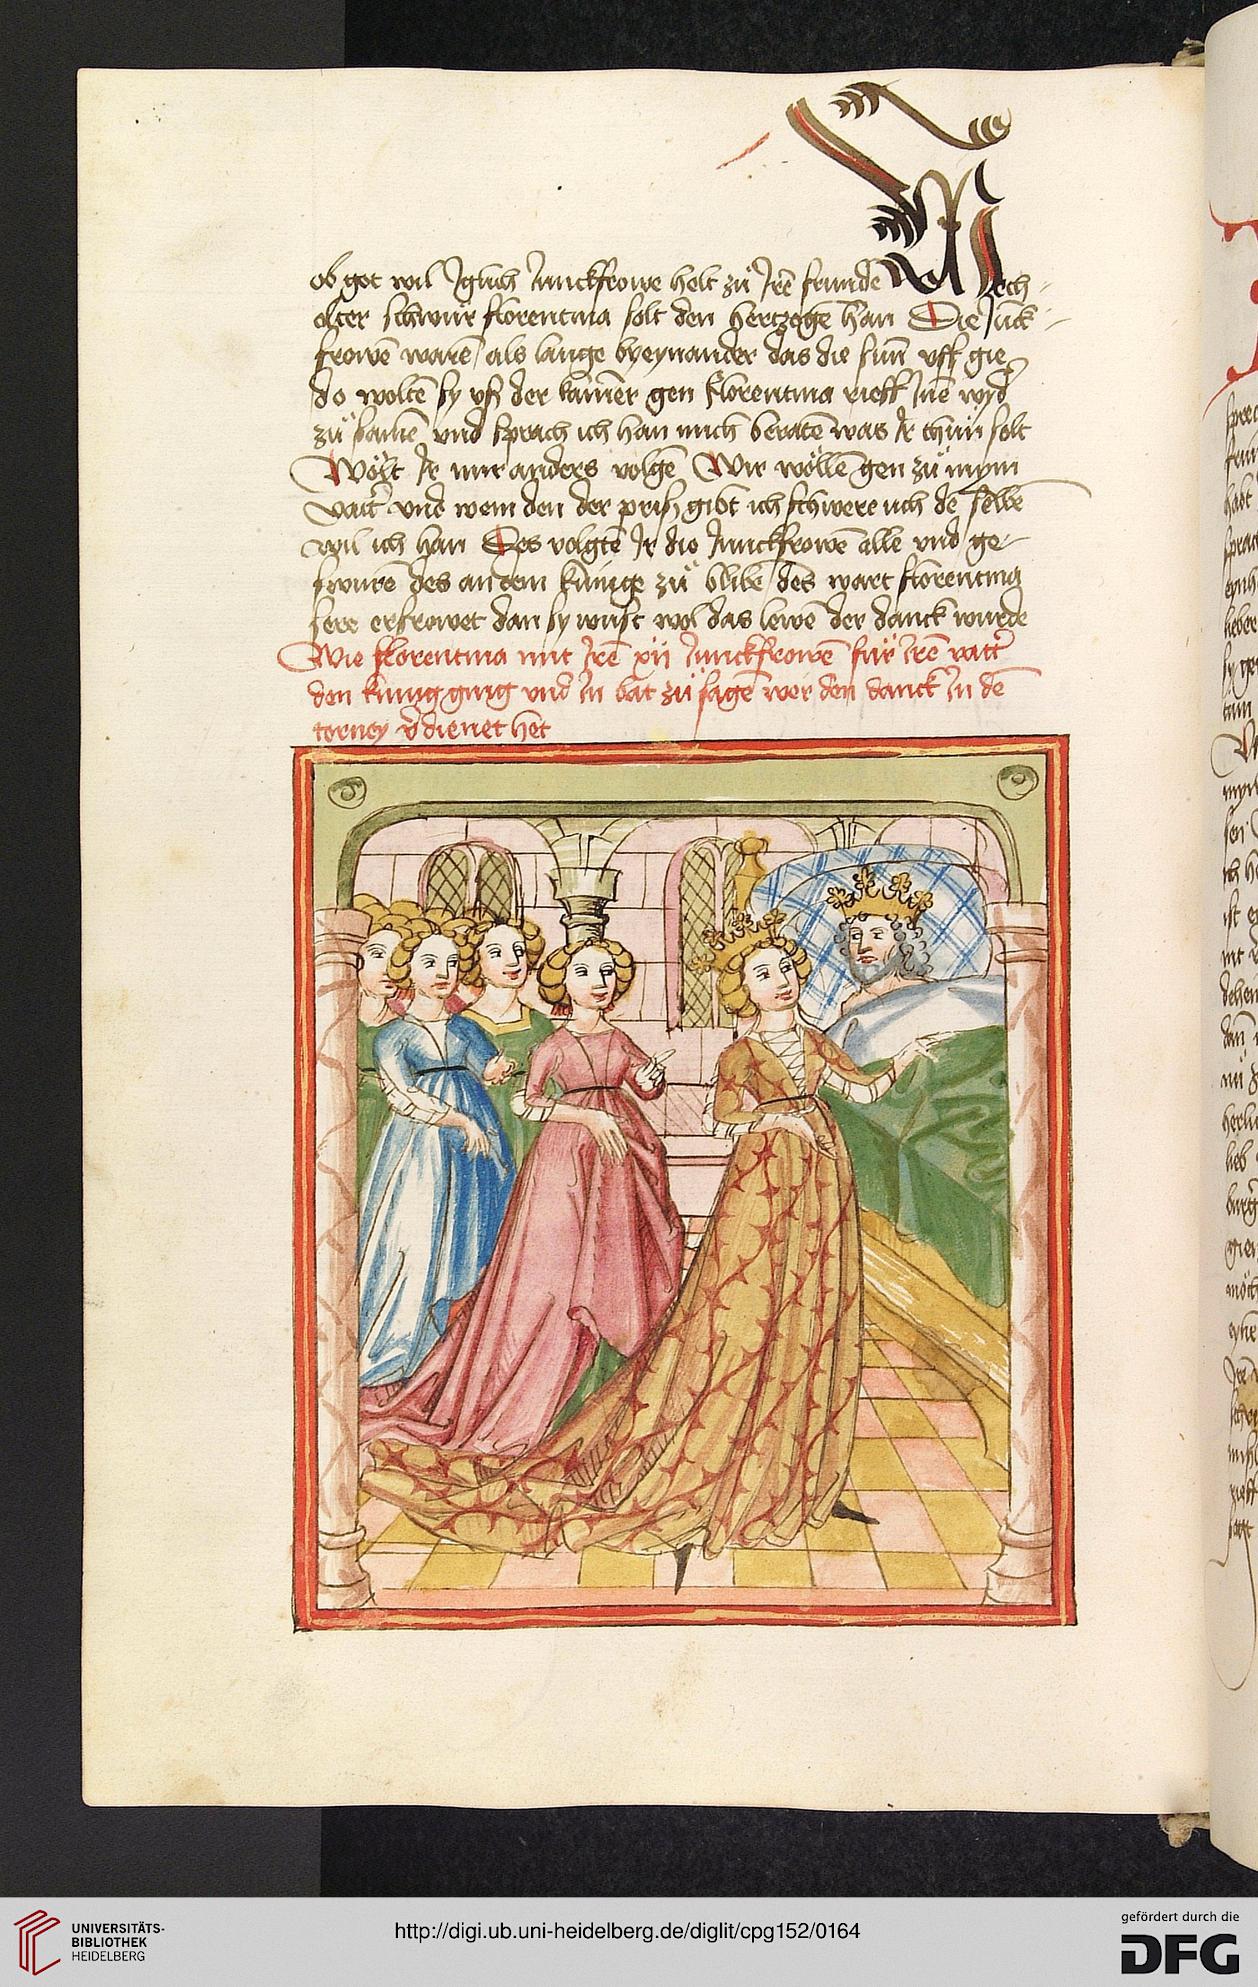 ob got wil Iglich Junckfrowe helt zu Irē frunde Mech-
olter schwur florentina solt den hertzogē han Die Junck-
frowē warē als lange byeynander das die sunn vff gie
do woltē sy vß der kamer gen Florentina rieff Inē wyd̄
zu samē und sprach ich han mich beratē was Ir thun solt
Wolt Ir mir anders volgē Wir wöllē gen zu mym
vatt̄ und wem den der priß gibt ich schwere uch dē selbē
wil ich han Des volgtē Ir die Junckfrowē alle und ge-
swurē des an dem kunige zu blibē des wart florentina
sere erfrowet dan sy wust wol das lewē der danck wurde
Wie florentina mit Irē xii Junckfrowē fur Irē vatt̄
den kunig ging und In bat zu sagē wer den danck In dē
torney v̄dienet het
UNIVERSITÄTS-
BIBLIOTHEK
HEIDELBERG
http://digi.ub.uni-heidelberg.de/diglit/cpg152/0164
gefördert durch die
DFG